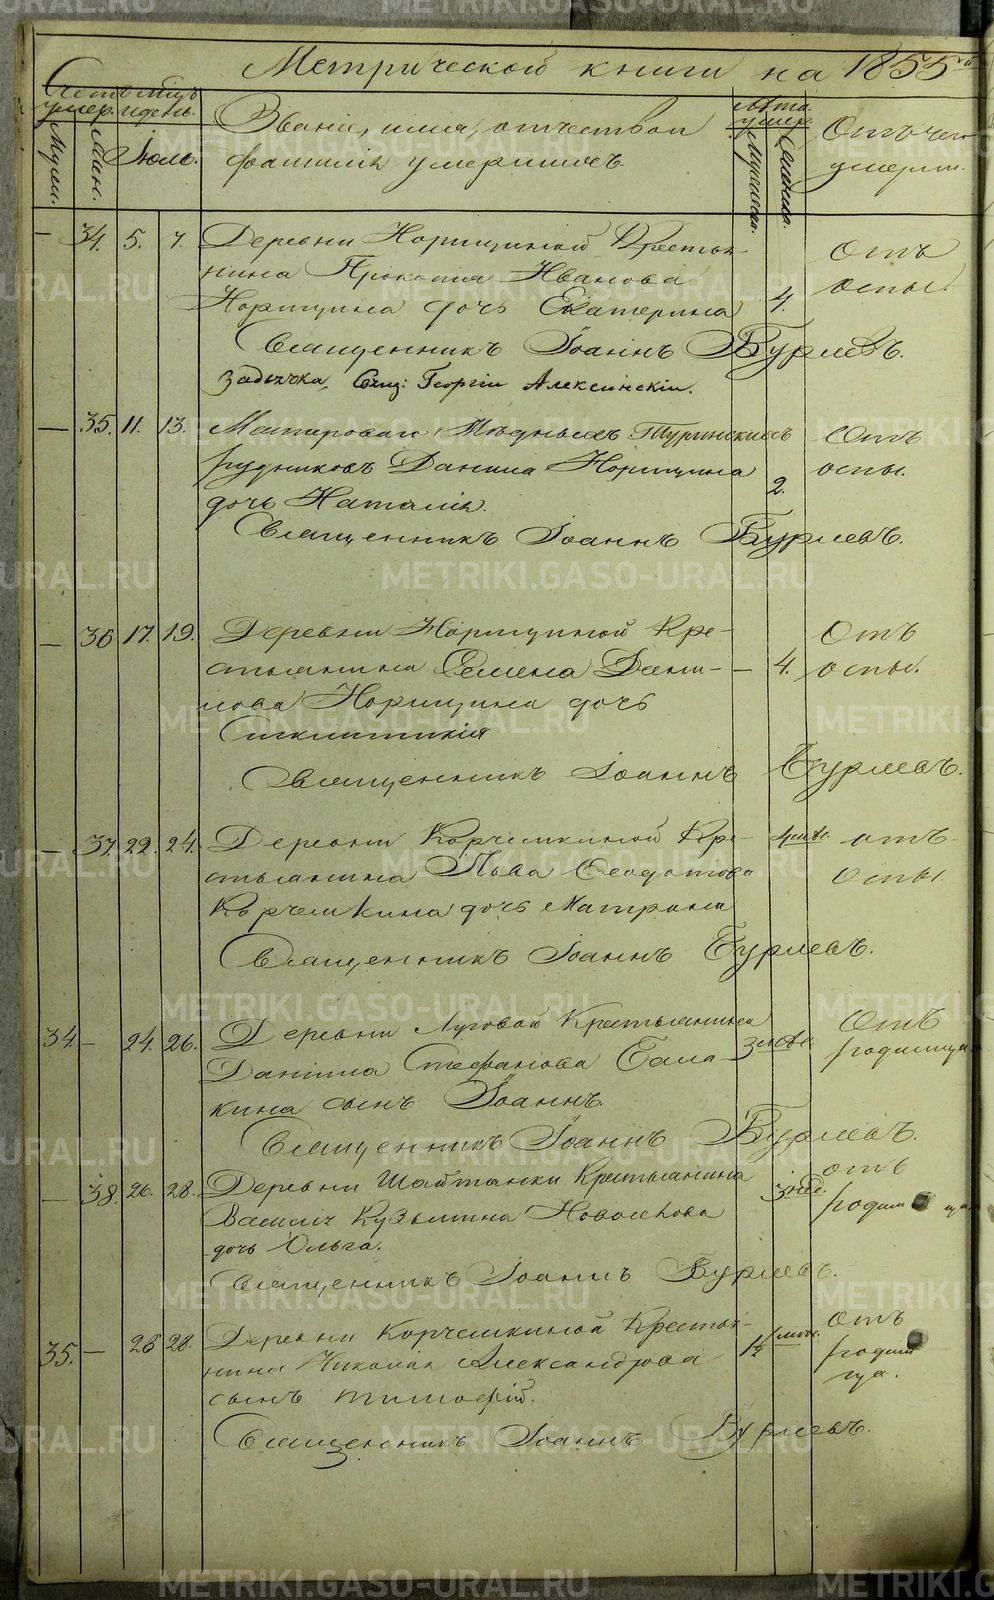 Метрической книги на 1855й
Счетъ умер.
Муж.
Жен.
Мѣсяцъ и день.
Іюль.
Званіе, имя, отчество и
фамилія умершихъ.
Лѣта умер.
Мужеска.
Женска.
Отъ чего
умерли.
— 34. 5. 7. Деревни Норицыной Крестья-
нина Прокопія Иванова
Норицына дочь Екатерина 4. Отъ оспы.
Священникъ Іоаннъ Бурлевъ.
Свящ: Георгій Алексинскій.
— 35. 11. 13. Мастероваго Мѣдныхъ Туринскихъ
рудниковъ Данила Норицына
дочь Наталія. 2. Отъ оспы.
Священникъ Іоаннъ Бурлевъ.
— 36 17. 19. Деревни Норицыной Кре-
стьянина Семена Дани-
лова Норицына дочь
Синклитикія — 4. Отъ оспы.
Священникъ Іоаннъ Бурлевъ.
— 37. 22. 24. Деревни Корчемкиной Кре-
стьянина Льва Ѳеодотова
Корчемкина дочь Матрона 4 мѣс. отъ оспы.
Священникъ Іоаннъ Бурлевъ.
34. — 24. 26. Деревни Луговой Крестьянина
Даніила Стефанова Бала-
кина сынъ Іоаннъ. 3 мѣс. Отъ родимца
Священникъ Іоаннъ Бурлевъ.
— 38. 26. 28. Деревни Шайтанки Крестьянина
Василія Кузьмина Новосѣлова
дочь Ольга. 3 нед. отъ родимца.
Священникъ Іоаннъ Бурлевъ.
35. — 26 28. Деревни Корчемкиной Крестья-
нина Николая Александрова
сынъ Тимофей. отъ родимца.
Священникъ Іоаннъ Бурлевъ.
METRIKI.GASO-URAL.RU